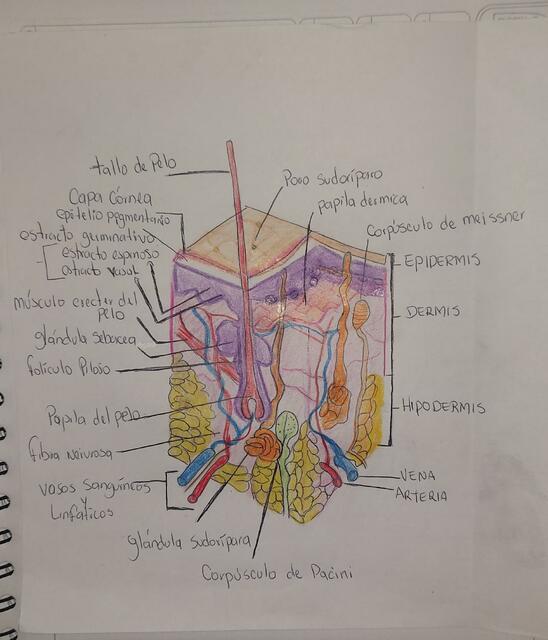 tallo de Pelo
Poro sudoríparo
papila dermica
Capa Córnea
epitelio pegmentario
Corpúsculo de meissner
estracto germinativo
estracto espinoso
estracto vasal
EPIDERMIS
músculo erecter del
pelo
DERMIS
glándula sebacea
foliculo Piloso
Papila del pelo
HIPODERMIS
fibra nerviosa
vasos sanguíneos
y
Linfáticos
VENA
ARTERIA
glándula sudorípara
Corpúsculo de Pacini